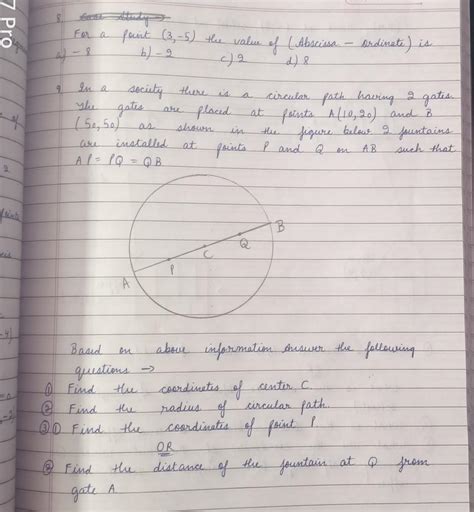 7 Pro
8. Case Study →
For a point (3,-5) the value of (Abscissa - ordinate) is
a) - 8 b) -2 c) 2 d) 8
9. In a society there is a circular path having 2 gates.
The gates are placed at points A(10,20) and B
(50,50) as shown in the figure below 2 fountains
are installed at points P and Q on AB such that
AP = PQ = QB
B
Q
C
P
A
Based on above information answer the following
questions →
① Find the coordinates of center C.
② Find the radius of circular path.
③ ① Find the coordinates of point P
OR
② Find the distance of the fountain at Q from
gate A.